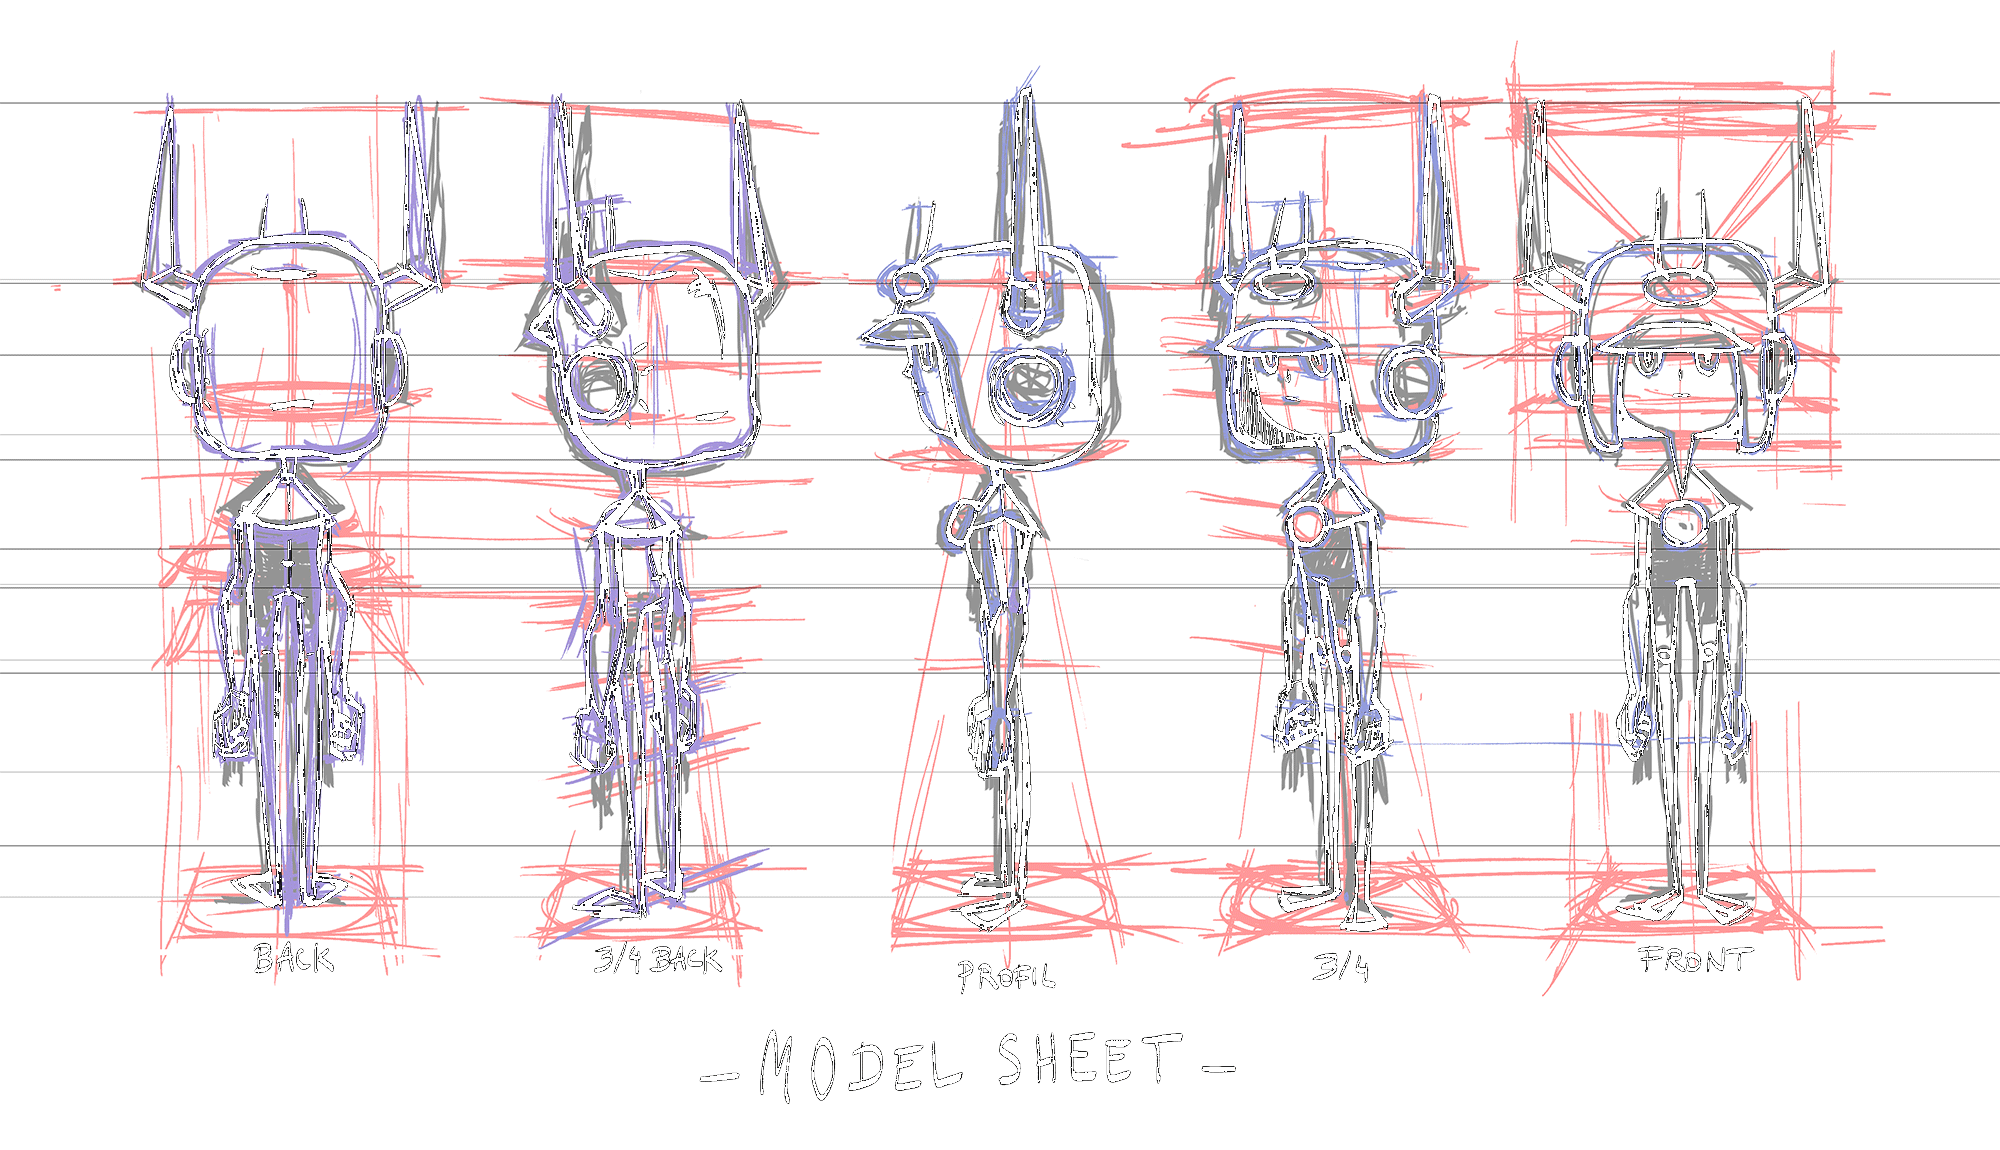 BACK
3/4 BACK
PROFIL
3/4
FRONT
- MODEL SHEET -